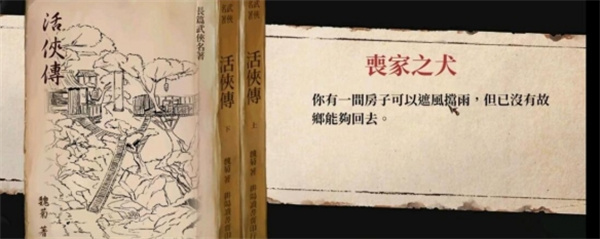 長篇武俠名著
活俠傳
魏菊 著
活俠傳
下
著
活俠傳
上
著
喪家之犬
你有一間房子可以遮風擋雨，但已沒有故
鄉能夠回去。